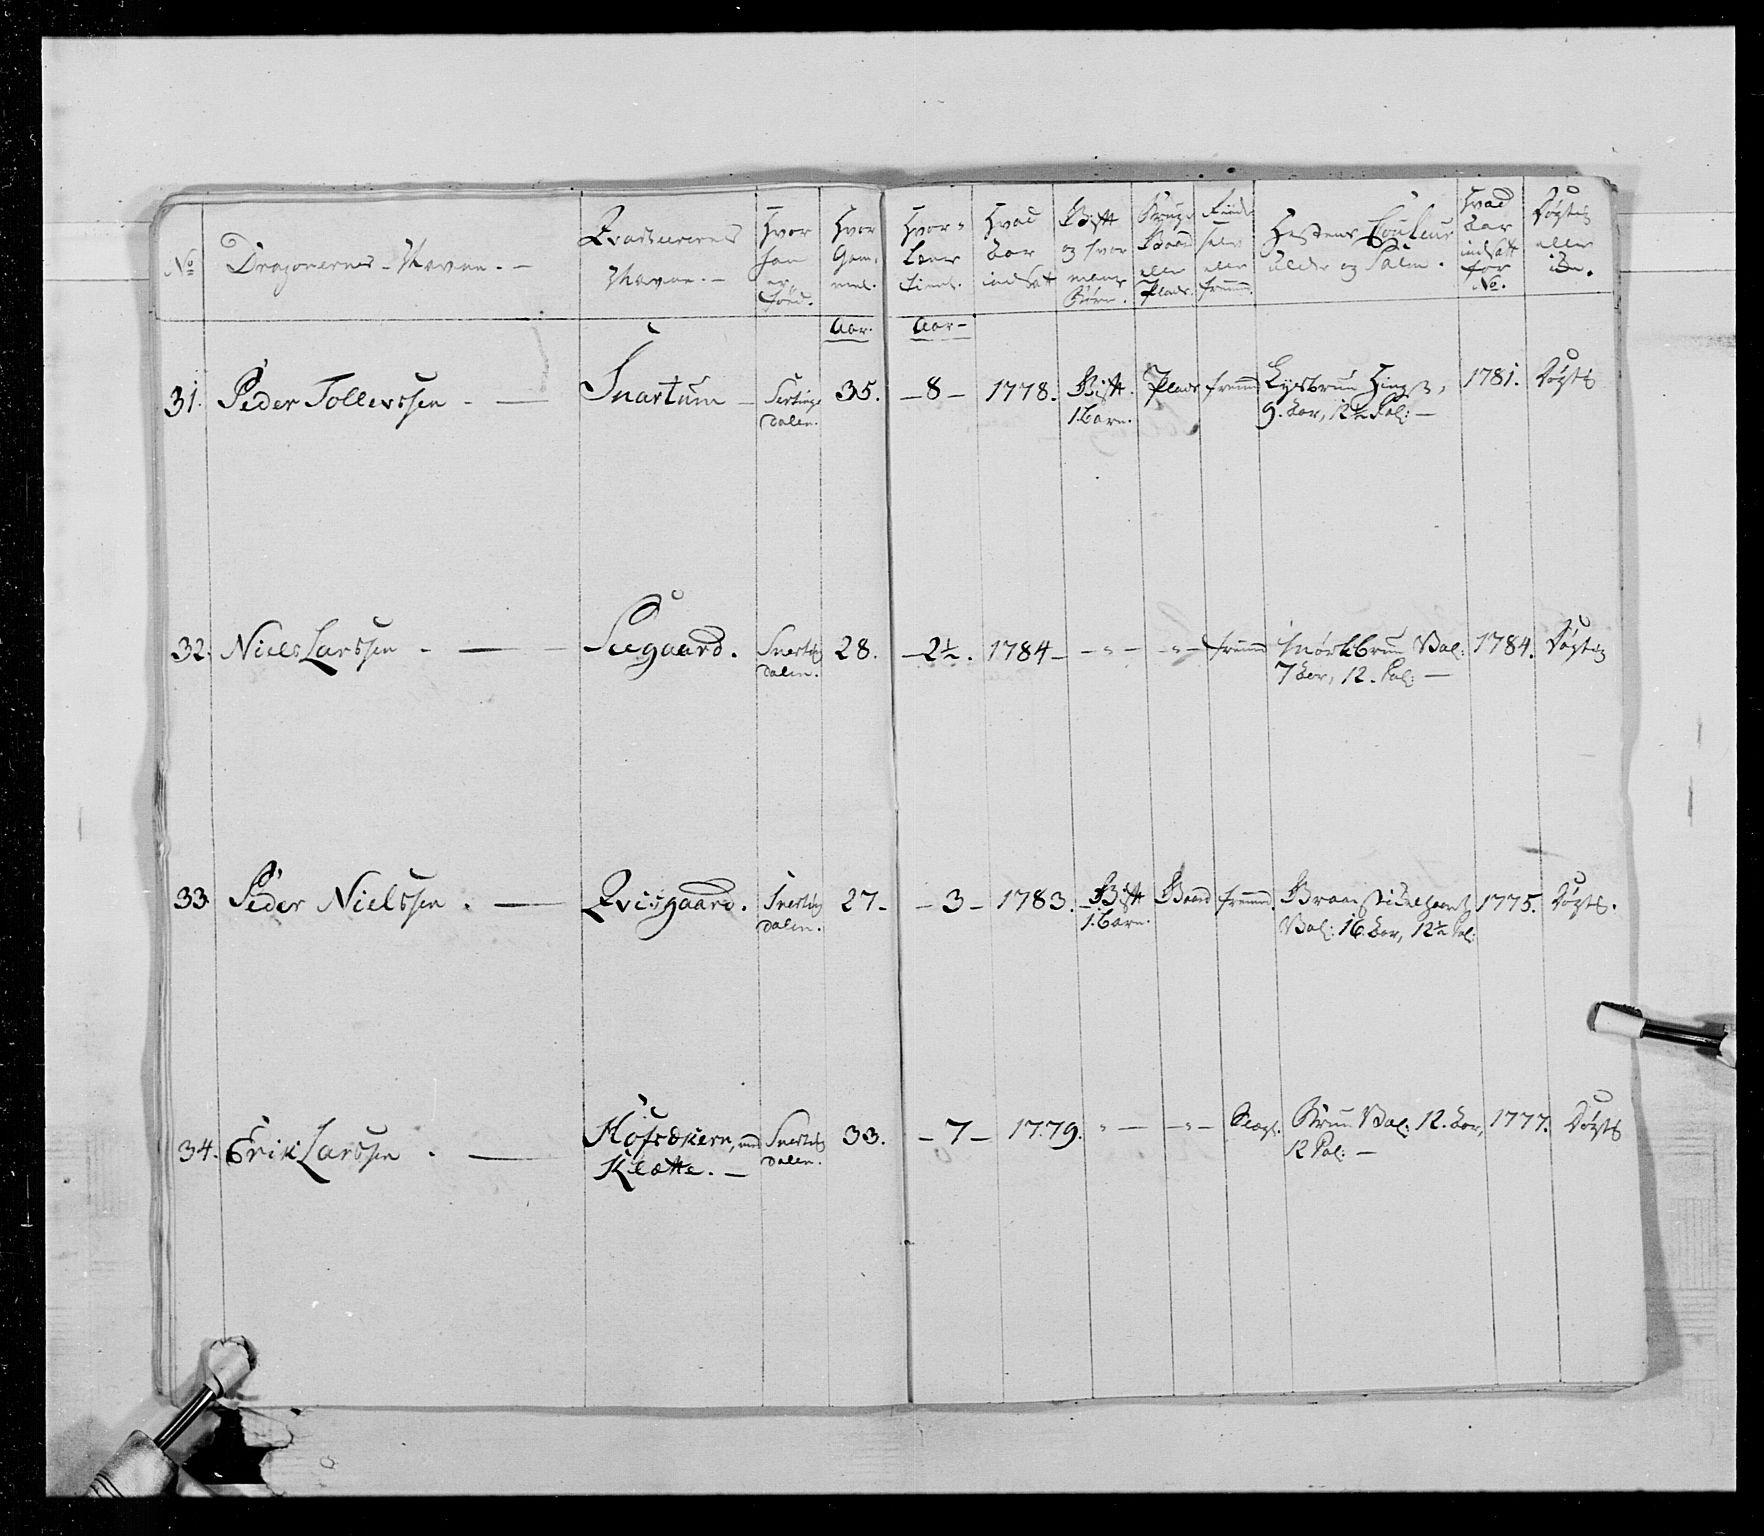 No
Dragonernes Navne. -
Qvarterernes
Navne. -
Hvor
han
er
född.
Hvor
Gam-
mel.
Hvor-
længe
tient.
Hvad
Aar
indsat
Gift
og hvor
mange
Börn.
Brug.
Gaard
eller
Plads.
Finds
selv
eller
fremmed.
Hestens Couleur
alder og Palm.
Hvad
Aar
indsatt
for
No.
Dögtig
eller
ikke.
Aar.
Aar -
31.
Peder Tollevssen - —
Snartum -
Snertings
dalen.
35.
- 8 -
1778.
Gift
1. barn.
Plads
fremmed
Lysbrun Hingst,
9. Aar, 12½ Pal: -
1781.
Dögtig
32.
Niels Larssen - — -
Seegaard.
Snertings
dalen.
28.
- 2½.
1784 -
- " -
- " -
fremmed
mörkbrun Val:
7 Aar, 12. Pal: -
1784.
Dögtig
33.
Peder Nielssen. —
Qvisgaard.
Snertings
dalen.
27 -
- 3 -
1783.
Gift
1. barn.
Gaard
fremmed.
Bruun
Val: 16 Aar, 12½ Pal:
1775.
Dögtig.
34.
Erik Larssen . —
med
Klætte. -
Snertings
dalen.
33.
- 7 -
1779.
" -
- " -
Brun Val: 12. Aar,
12 Pal: -
1777.
Dögtig